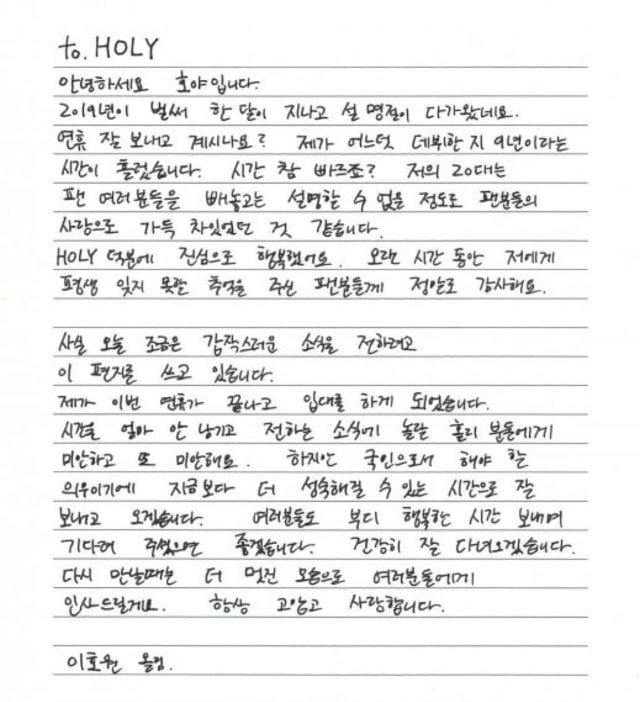 to. HOLY
안녕하세요 호야입니다.
2019년이 벌써 한 달이 지나고 설 명절이 다가왔네요.
연휴 잘 보내고 계시나요? 제가 어느덧 데뷔한 지 9년이라는
시간이 흘렀습니다. 시간 참 빠르죠? 저의 20대는
팬 여러분들을 빼놓고는 설명할 수 없을 정도로 팬분들의
사랑으로 가득 차있었던 것 같습니다.
HOLY 덕분에 진심으로 행복했어요. 오랜 시간 동안 저에게
평생 잊지 못할 추억을 주신 팬분들께 정말로 감사해요.
사실 오늘 조금은 갑작스러운 소식을 전하려고
이 편지를 쓰고 있습니다.
제가 이번 연휴가 끝나고 입대를 하게 되었습니다.
시간을 얼마 안 남기고 전하는 소식에 놀랄 홀리 분들에게
미안하고 또 미안해요. 하지만 국인으로서 해야 할
의무이기에 지금보다 더 성숙해질 수 있는 시간으로 잘
보내고 오겠습니다. 여러분들도 부디 행복한 시간 보내며
기다려 주셨으면 좋겠습니다. 건강히 잘 다녀오겠습니다.
다시 만날때는 더 멋진 모습으로 여러분들에게
인사드릴게요. 항상 고맙고 사랑합니다.
이호원 올림.